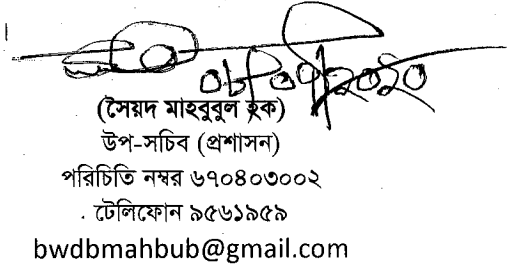 ০৮।০৭।২০২০
(সৈয়দ মাহবুবুল হক)
উপ-সচিব (প্রশাসন)
পরিচিতি নম্বর ৬৭০৪০৩০০২
টেলিফোন ৯৫৬১৯৫৯
bwdbmahbub@gmail.com